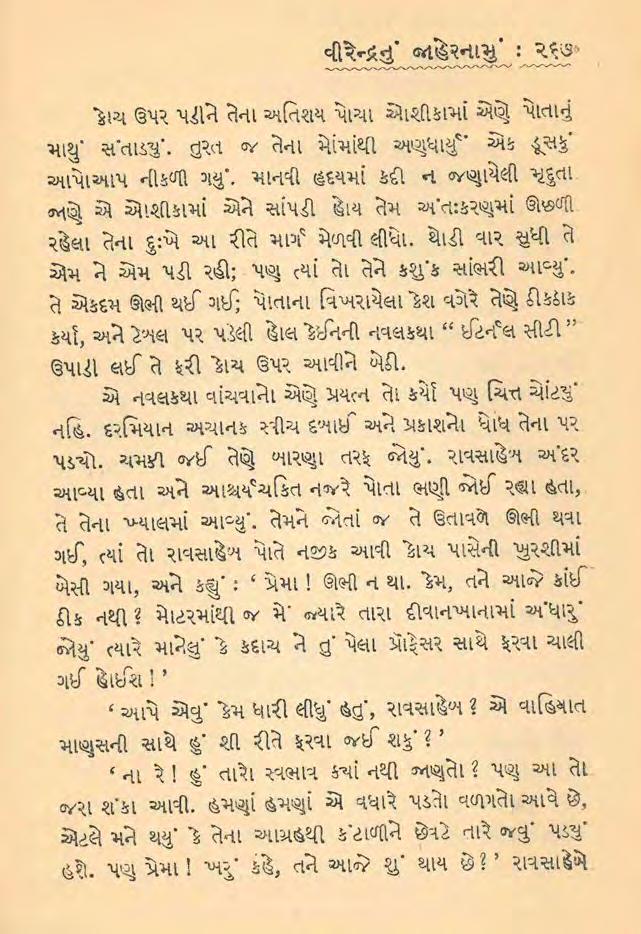 વીરેન્દ્રનું જાહેરનામું : ૨૬૭
કોચ ઉપર પડીને તેના અતિશય પોચા ઓશીકામાં એણે પોતાનું
માથું સંતાડ્યું. તુરત જ તેના મોંમાંથી અણધાર્યું એક ડૂસકું
આપોઆપ નીકળી ગયું. માનવી હૃદયમાં કદી ન જણાયેલી મૃદુતા
જાણે એ ઓશીકામાં એને સાંપડી હોય તેમ અંતઃકરણમાં ઊછળી
રહેલા તેના દુઃખે આ રીતે માર્ગ મેળવી લીધો. થોડી વાર સુધી તે
એમ ને એમ પડી રહી; પણ ત્યાં તો તેને કશુંક સાંભરી આવ્યું.
તે એકદમ ઊભી થઈ ગઈ; પોતાના વિખરાયેલા કેશ વગેરે તેણે ઠીકઠાક
કર્યા, અને ટેબલ પર પડેલી હોલ કેઈનની નવલકથા “ ઈટર્નલ સીટી ”
ઉપાડી લઈ તે ફરી કોચ ઉપર આવીને બેઠી.
એ નવલકથા વાંચવાનો એણે પ્રયત્ન તો કર્યો પણ ચિત્ત ચોંટ્યું
નહિ. દરમિયાન અચાનક સ્વીચ દબાઈ અને પ્રકાશનો ધોધ તેના પર
પડ્યો. ચમકી જઈ તેણે બારણા તરફ જોયું. રાવસાહેબ અંદર
આવ્યા હતા અને આશ્ચર્યચકિત નજરે પોતા ભણી જોઈ રહ્યા હતા,
તે તેના ખ્યાલમાં આવ્યું. તેમને જોતાં જ તે ઉતાવળે ઊભી થવા
ગઈ, ત્યાં તો રાવસાહેબ પોતે નજીક આવી કોચ પાસેની ખુરશીમાં
બેસી ગયા, અને કહ્યું : ‘ પ્રેમા ! ઊભી ન થા. કેમ, તને આજે કાંઈ
ઠીક નથી ? મોટરમાંથી જ મેં જ્યારે તારા દીવાનખાનામાં અંધારું
જોયું ત્યારે માનેલું કે કદાચ ને તું પેલા પ્રૉફેસર સાથે ફરવા ચાલી
ગઈ હોઈશ ! ’
‘ આપે એવું કેમ ધારી લીધું હતું, રાવસાહેબ ? એ વાહિયાત
માણસની સાથે હું શી રીતે ફરવા જઈ શકું ? ’
‘ ના રે ! હું તારો સ્વભાવ ક્યાં નથી જાણતો ? પણ આ તો
જરા શંકા આવી. હમણાં હમણાં એ વધારે પડતો વળગતો આવે છે,
એટલે મને થયું કે તેના આગ્રહથી કંટાળીને છેવટે તારે જવું પડ્યું
હશે. પણ પ્રેમા ! ખરું કહે, તને આજે શું થાય છે ? ’ રાવસાહેબે